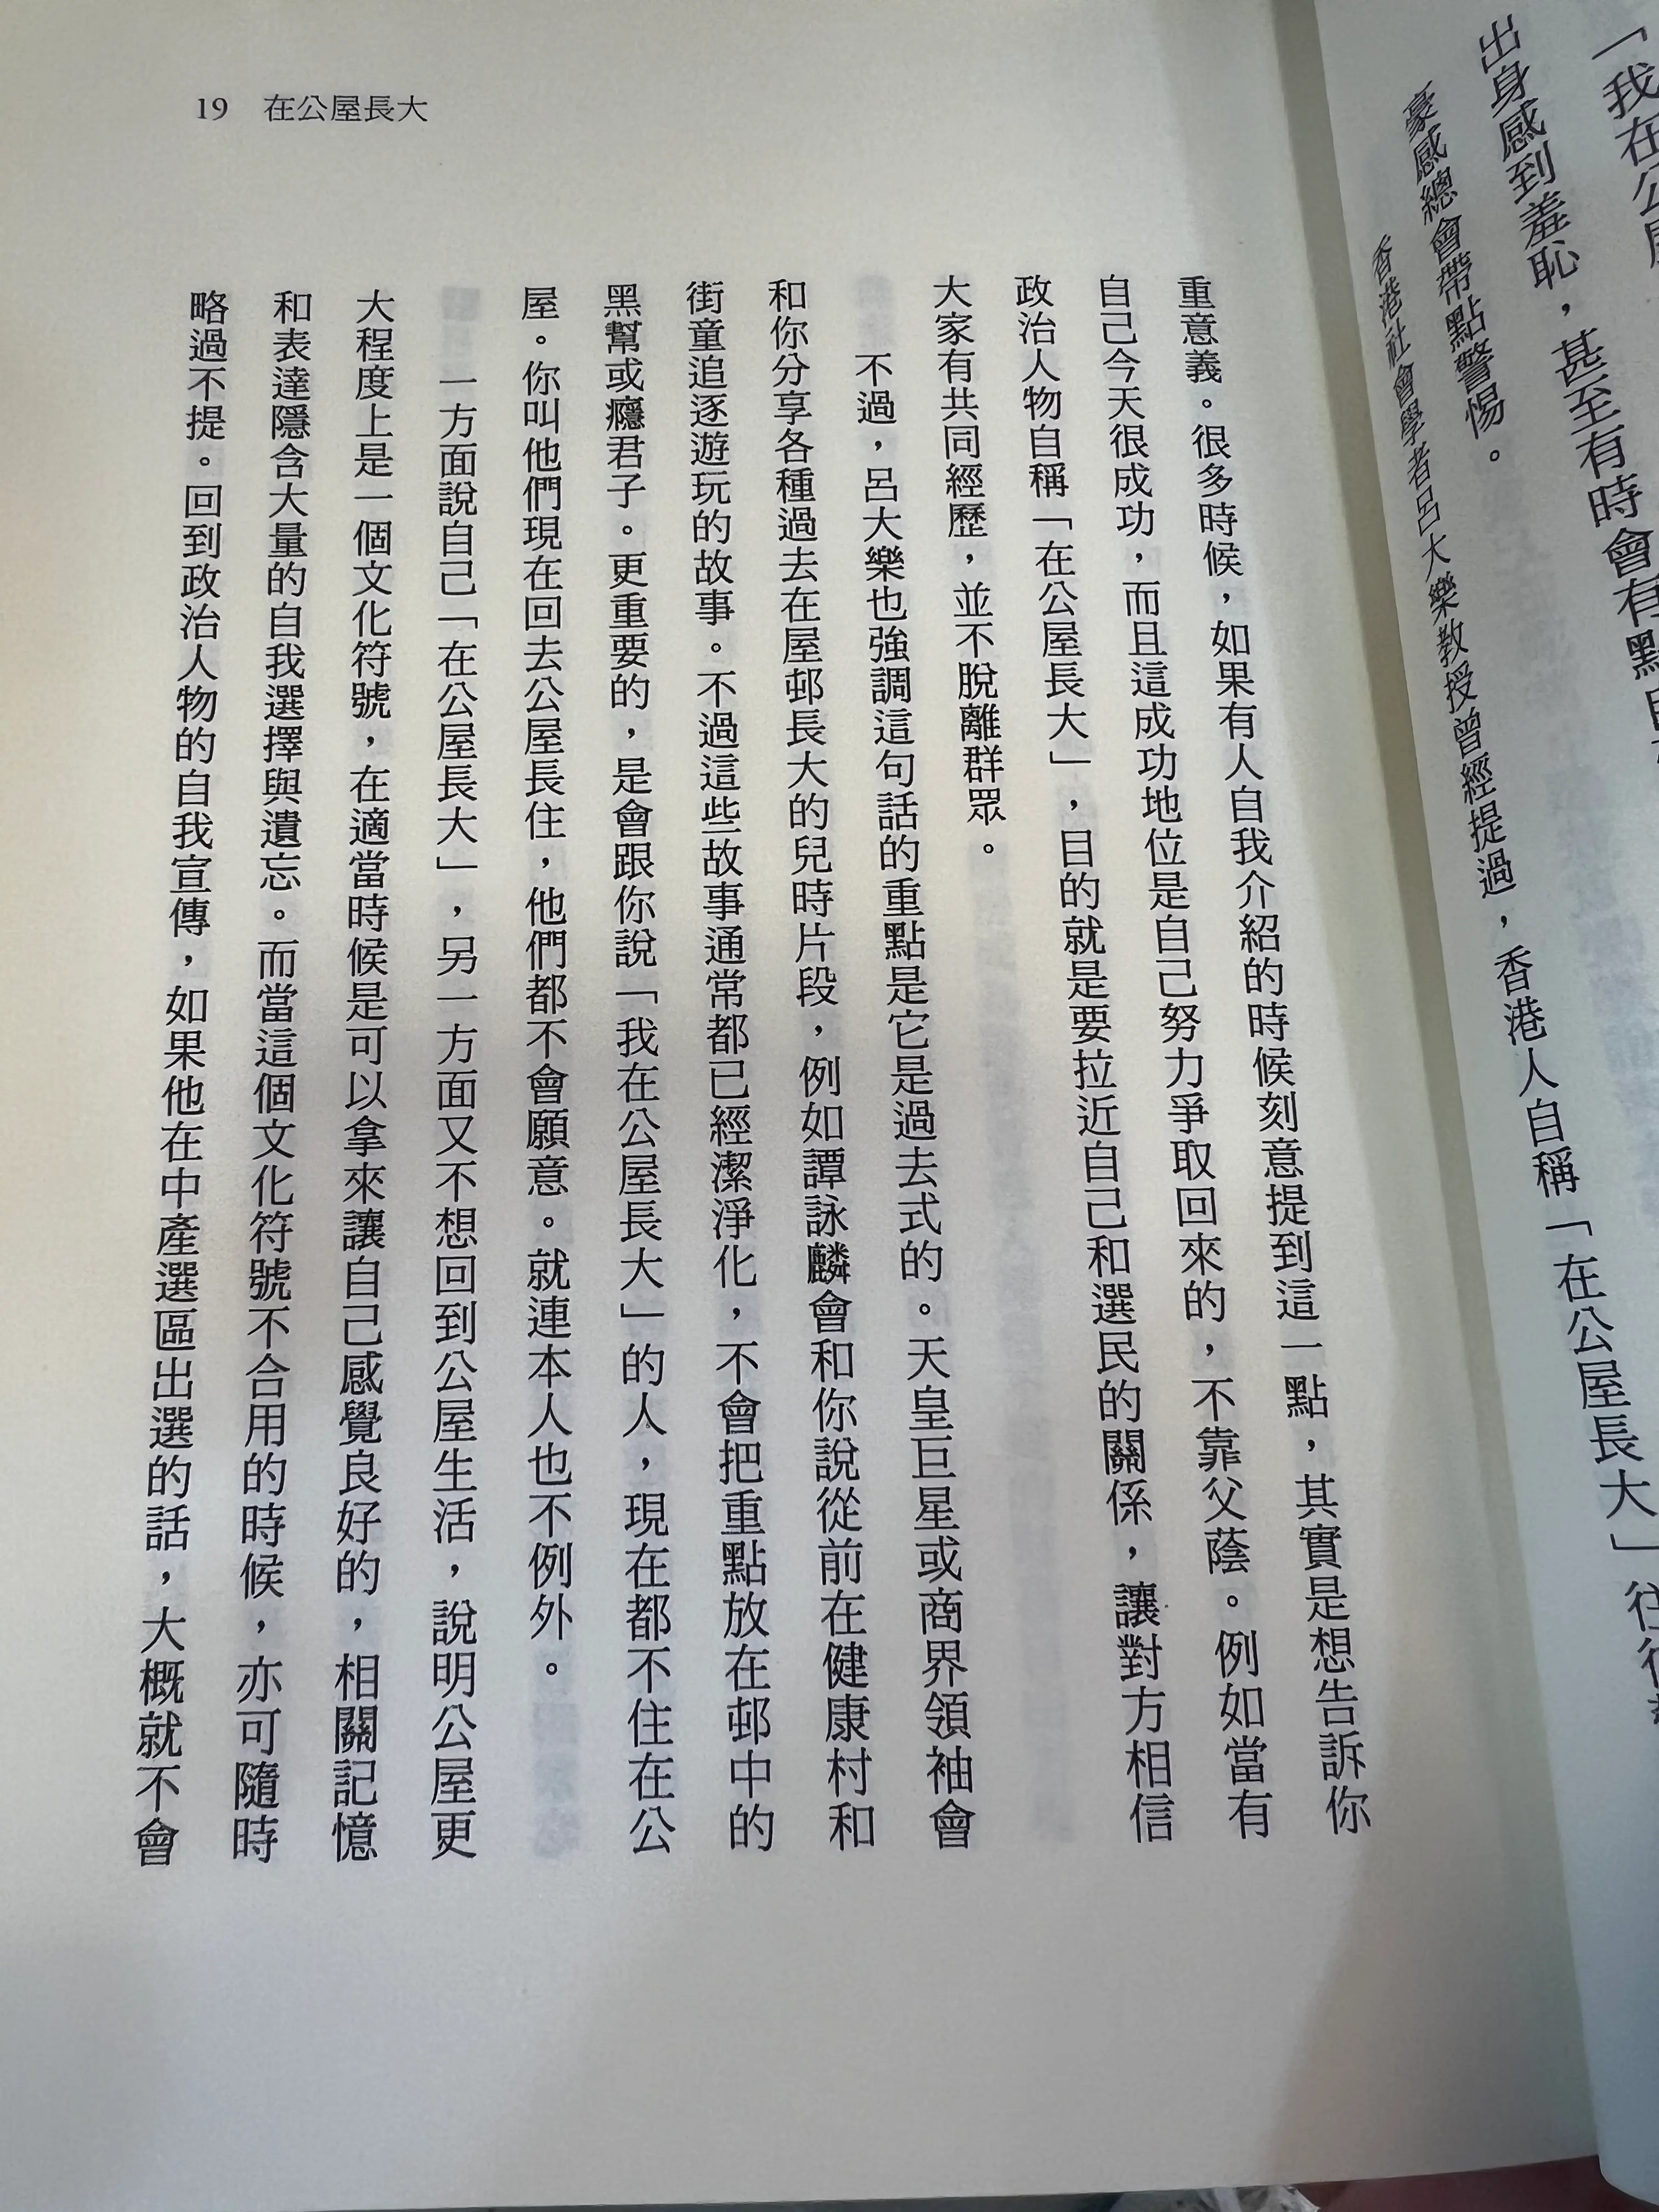 「我在公屋
出身感到羞恥，甚至有時會有點
豪感總會帶點警惕。
香港社會學者呂大樂教授曾經提過，香港人自稱「在公屋長大」往往
19 在公屋長大
重意義。很多時候，如果有人自我介紹的時候刻意提到這一點，其實是想告訴你
自己今天很成功，而且這成功地位是自己努力爭取回來的，不靠父蔭。例如當有
政治人物自稱「在公屋長大」，目的就是要拉近自己和選民的關係，讓對方相信
大家有共同經歷，並不脫離群眾。
不過，呂大樂也強調這句話的重點是它是過去式的。天皇巨星或商界領袖會
和你分享各種過去在屋邨長大的兒時片段，例如譚詠麟會和你說從前在健康村和
街童追逐遊玩的故事。不過這些故事通常都已經潔淨化，不會把重點放在邨中的
黑幫或癮君子。更重要的，是會跟你說「我在公屋長大」的人，現在都不住在公
屋。你叫他們現在回去公屋長住，他們都不會願意。就連本人也不例外。
一方面說自己「在公屋長大」，另一方面又不想回到公屋生活，說明公屋更
大程度上是一個文化符號，在適當時候是可以拿來讓自己感覺良好的，相關記憶
和表達隱含大量的自我選擇與遺忘。而當這個文化符號不合用的時候，亦可隨時
略過不提。回到政治人物的自我宣傳，如果他在中產選區出選的話，大概就不會